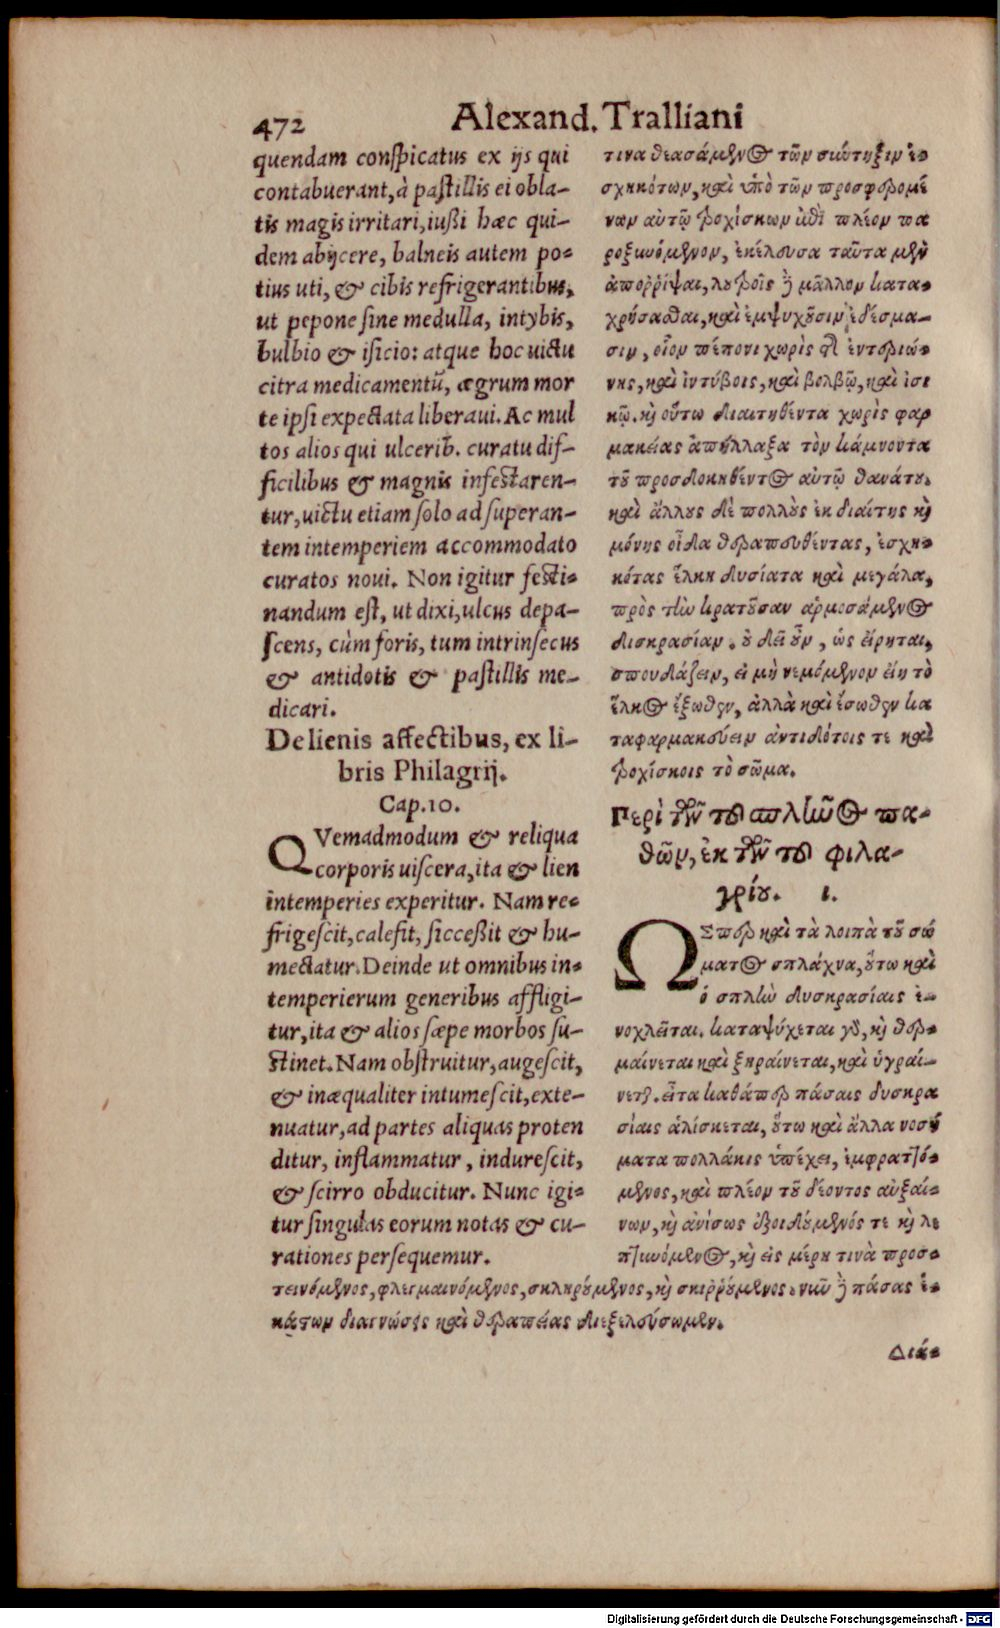 472 Alexand. Tralliani
quendam conspicatus ex ijs qui
contabuerant, à pastillis ei obla-
tis magis irritari, iußi hæc qui-
dem abijcere, balneis autem po-
tius uti, & cibis refrigerantibus,
ut pepone sine medulla, intybis,
bulbio & isicio: atque hoc uictu
citra medicamentũ, ægrum mor
te ipsi expectata liberaui. Ac mul
tos alios qui ulcerib. curatu dif-
ficilibus & magnis infestaren-
tur, uictu etiam solo ad superan-
tem intemperiem accommodato
curatos noui. Non igitur festi-
nandum est, ut dixi, ulcus depa-
scens, cùm foris, tum intrinsecus
& antidotis & pastillis me-
dicari.
De lienis affectibus, ex li-
bris Philagrij.
Cap. 10.
QVemadmodum & reliqua
corporis uiscera, ita & lien
intemperies experitur. Nam re-
frigescit, calefit, sicceßit & hu-
mectatur. Deinde ut omnibus in-
temperierum generibus affligi-
tur, ita & alios sæpe morbos su-
stinet. Nam obstruitur, augescit,
& inæqualiter intumescit, exte-
nuatur, ad partes aliquas proten
ditur, inflammatur, indurescit,
& scirro obducitur. Nunc igi-
tur singulas eorum notas & cu-
rationes persequemur.
τινα θεασάμενος τῶν σύντηξιν ἐ-
σχηκότων, καὶ ὑπὸ τῶν προσφερομέ
νων αὐτῷ τροχίσκων ἐπὶ πλέον πα
ροξυνόμενον, ἐκέλευσα ταῦτα μὲν
ἀποῤῥίψαι, λουτροῖς δὲ μᾶλλον κατα-
χρήσασθαι, καὶ ἐμψυχοῦσιν ἐδέσμα-
σιν, οἷον πέπονι χωρὶς τῆς ἐντεριώ-
νης, καὶ ἰντύβοις, καὶ βολβῷ, καὶ ἰσι
κῷ. καὶ οὕτω διαιτηθέντα χωρὶς φαρ
μακείας ἀπήλλαξα τὸν κάμνοντα
τοῦ προσδοκηθέντος αὐτῷ θανάτου.
καὶ ἄλλους δὲ πολλοὺς ἐκ διαίτης καὶ
μόνης οἶδα θεραπευθέντας, ἐσχη-
κότας ἕλκη δυσίατα καὶ μεγάλα,
πρὸς τὴν κρατοῦσαν ἁρμοσάμενος
δισκρασίαν. οὐ δεῖ οὖν, ὡς εἴρηται,
σπουδάζειν, εἰ μὴ νεμόμενον εἴη τὸ
ἕλκος ἔξωθεν, ἀλλὰ καὶ ἔσωθεν κα
ταφαρμακεύειν ἀντιδότοις τε καὶ
τροχίσκοις τὸ σῶμα.
Περὶ τῶν τοῦ σπληνὸς πα-
θῶν, ἐκ τῶν τοῦ φιλα-
γρίου. ι.
ΩΣπερ καὶ τὰ λοιπὰ τοῦ σώ
ματος σπλάχνα, οὕτω καὶ
ὁ σπλὴν δυσκρασίαις ἐ-
νοχλεῖται. καταψύχεται γὰρ, καὶ θερ-
μαίνεται καὶ ξηραίνεται, καὶ ὑγραί-
νεται. εἶτα καθάπερ πάσαις δυσκρα
σίαις ἁλίσκεται, οὕτω καὶ ἄλλα νοσή
ματα πολλάκις ὑπέχει, ἐμφραττό-
μενος, καὶ πλέον τοῦ δέοντος αὐξαί-
νων, καὶ ἀνίσως ἐξοιδούμενός τε καὶ λε
πτυνόμενος, καὶ εἰς μέρη τινὰ προσ-
τεινόμενος, φλεγμαινόμενος, σκληρούμενος, καὶ σκιῤῥούμενος. νῦν δὲ πάσας ἑ-
κάστων διαγνώσεις καὶ θεραπείας διεξελεύσωμεν.
Διά-
Digitalisierung gefördert durch die Deutsche Forschungsgemeinschaft - DFG